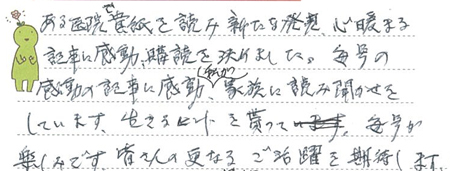 ある医院で貴紙を読み新たな発想、心暖まる
記事に感動、購読を決めました。毎号の
感動の記事に感動、私が家族に読み聞かせを
しています。生きるヒントを貰って 毎号が
楽しみです。皆さんの更なるご活躍を期待します。